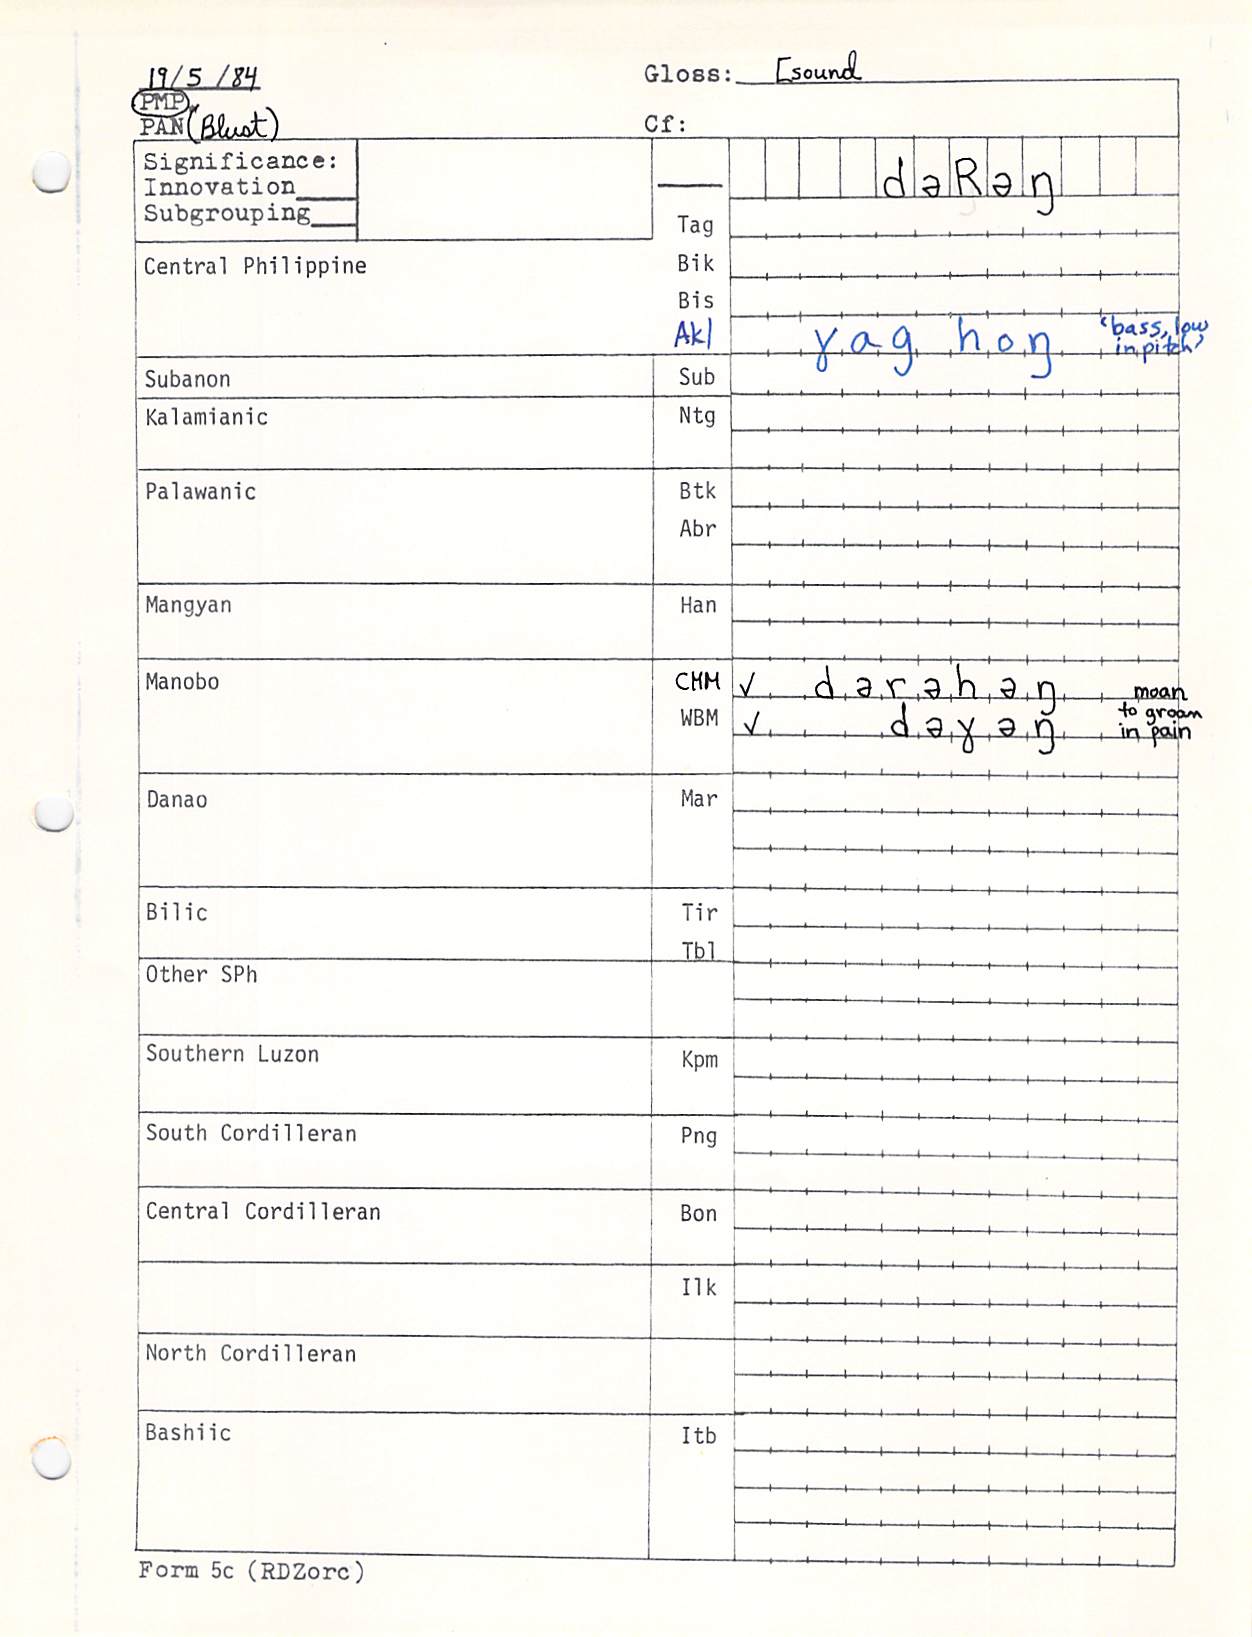 19/5/84
Gloss: [sound
PMP
PAN (Blust)
Cf:
Significance:
Innovation
Subgrouping
dəRəŋ
Tag
Central Philippine Bik
Bis
Akl ɣag hoŋ 'bass, low in pitch'
Subanon Sub
Kalamianic Ntg
Palawanic Btk
Abr
Mangyan Han
Manobo CMM ✓ dərəhəŋ moan
WBM ✓ dəɣəŋ to groan in pain
Danao Mar
Bilic Tir
Tbl
Other SPh
Southern Luzon Kpm
South Cordilleran Png
Central Cordilleran Bon
Ilk
North Cordilleran
Bashiic Itb
Form 5c (RDZorc)